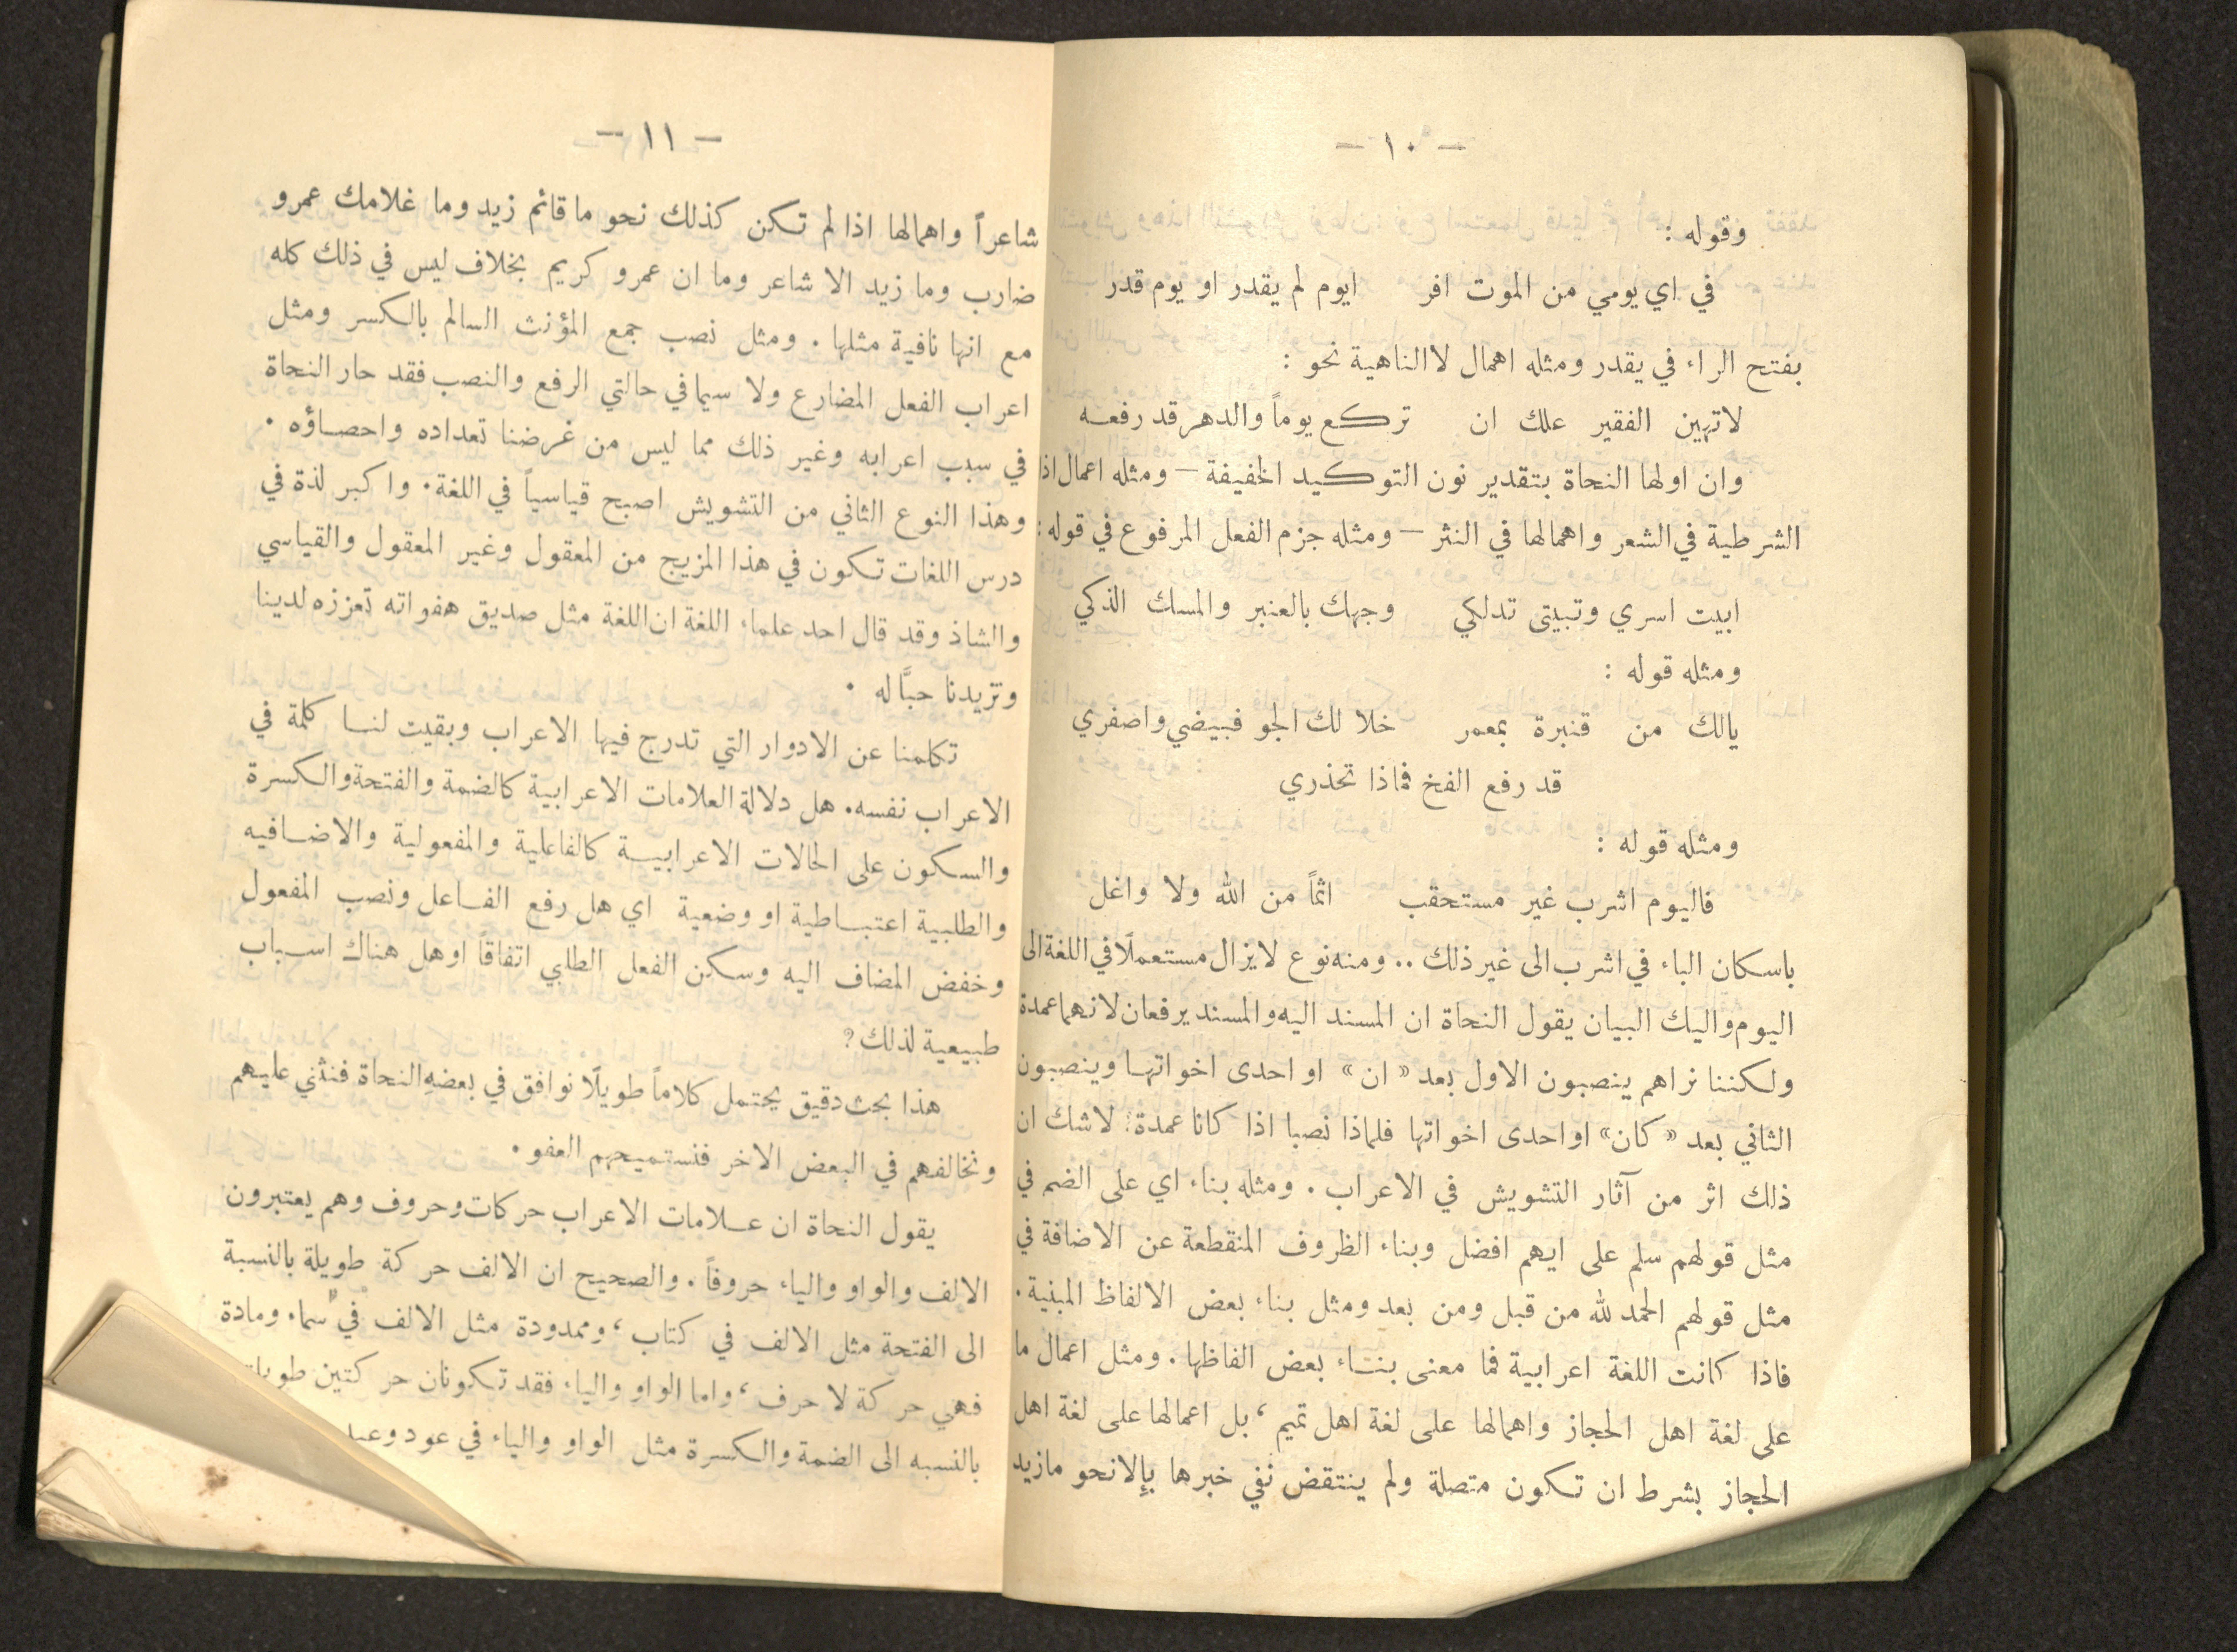 — ١٠ —
وقوله :
في اي يومي من الموت افر ايوم لم يقدر او يوم قدر
بفتح الراء في يقدر ومثله اهمال لا الناهية نحو :
لاتهين الفقير علك ان تركع يوماً والدهر قد رفعه
وان اولها النحاة بتقدير نون التوكيد الخفيفة — ومثله اعمال اذا
الشرطية في الشعر واهمالها في النثر — ومثله جزم الفعل المرفوع في قوله :
ابيت اسري وتبيتى تدلكي وجهك بالعنبر والمسك الذكي
ومثله قوله :
يالك من قنبرة بمعمر خلا لك الجو فبيضي واصفري
قد رفع الفخ فماذا تحذري
ومثله قوله :
فاليوم اشرب غير مستحقب اثماً من الله ولا واغل
باسكان الباء في اشرب الى غير ذلك .. ومنه نوع لايزال مستعملًا في اللغة الى
اليوم واليك البيان يقول النحاة ان المسند اليه والمسند يرفعان لانهما عمدة
ولكننا نراهم ينصبون الاول بعد « ان » او احدى اخواتها وينصبون
الثاني بعد « كان» او احدى اخواتها فلماذا نصبا اذا كانا عمدة؟ لاشك ان
ذلك اثر من آثار التشويش في الاعراب . ومثله بناء اي على الضم في
مثل قولهم سلم على ايهم افضل وبناء الظروف المنقطعة عن الاضافة في
مثل قولهم الحمد لله من قبل ومن بعد ومثل بناء بعض الالفاظ المبنية .
فاذا كانت اللغة اعرابية فما معنى بناء بعض الفاظها . ومثل اعمال ما
على لغة اهل الحجاز واهمالها على لغة اهل تميم ، بل اعمالها على لغة اهل
الحجاز بشرط ان تكون متصلة ولم ينتقض نفي خبرها بإلا نحو مازيد
— ١١ —
شاعراً واهمالها اذا لم تكن كذلك نحو ما قائم زيد وما غلامك عمرو
ضارب وما زيد الا شاعر وما ان عمرو كريم بخلاف ليس في ذلك كله
مع انها نافية مثلها . ومثل نصب جمع المؤنث السالم بالكسر ومثل
اعراب الفعل المضارع ولا سيما في حالتي الرفع والنصب فقد حار النحاة
في سبب اعرابه وغير ذلك مما ليس من غرضنا تعداده واحصاؤه .
وهذا النوع الثاني من التشويش اصبح قياسياً في اللغة . واكبر لذة في
درس اللغات تكون في هذا المزيج من المعقول وغير المعقول والقياسي
والشاذ وقد قال احد علماء اللغة ان اللغة مثل صديق هفواته تعززه لدينا
وتزيدنا حبًّا له .
تكلمنا عن الادوار التي تدرج فيها الاعراب وبقيت لنا كلمة في
الاعراب نفسه . هل دلالة العلامات الاعرابية كالضمة والفتحة والكسرة
والسكون على الحالات الاعرابية كالفاعلية والمفعولية والاضافيه
والطلبية اعتباطية او وضعية اي هل رفع الفاعل ونصب المفعول
وخفض المضاف اليه وسكن الفعل الطلبي اتفاقاً او هل هناك اسباب
طبيعية لذلك ؟
هذا بحث دقيق يحتمل كلاماً طويلًا نوافق في بعضهِ النحاة فنثني عليهم
ونخالفهم في البعض الاخر فنستميحهم العفو .
يقول النحاة ان علامات الاعراب حركات وحروف وهم يعتبرون
الالف والواو والياء حروفاً . والصحيح ان الالف حركة طويلة بالنسبة
الى الفتحة مثل الالف في كتاب ، وممدودة مثل الالف في سماء ومادة
فهي حركة لا حرف ، واما الواو والياء فقد تكونان حركتين
بالنسبه الى الضمة والكسرة مثل الواو والياء في عود وعيد